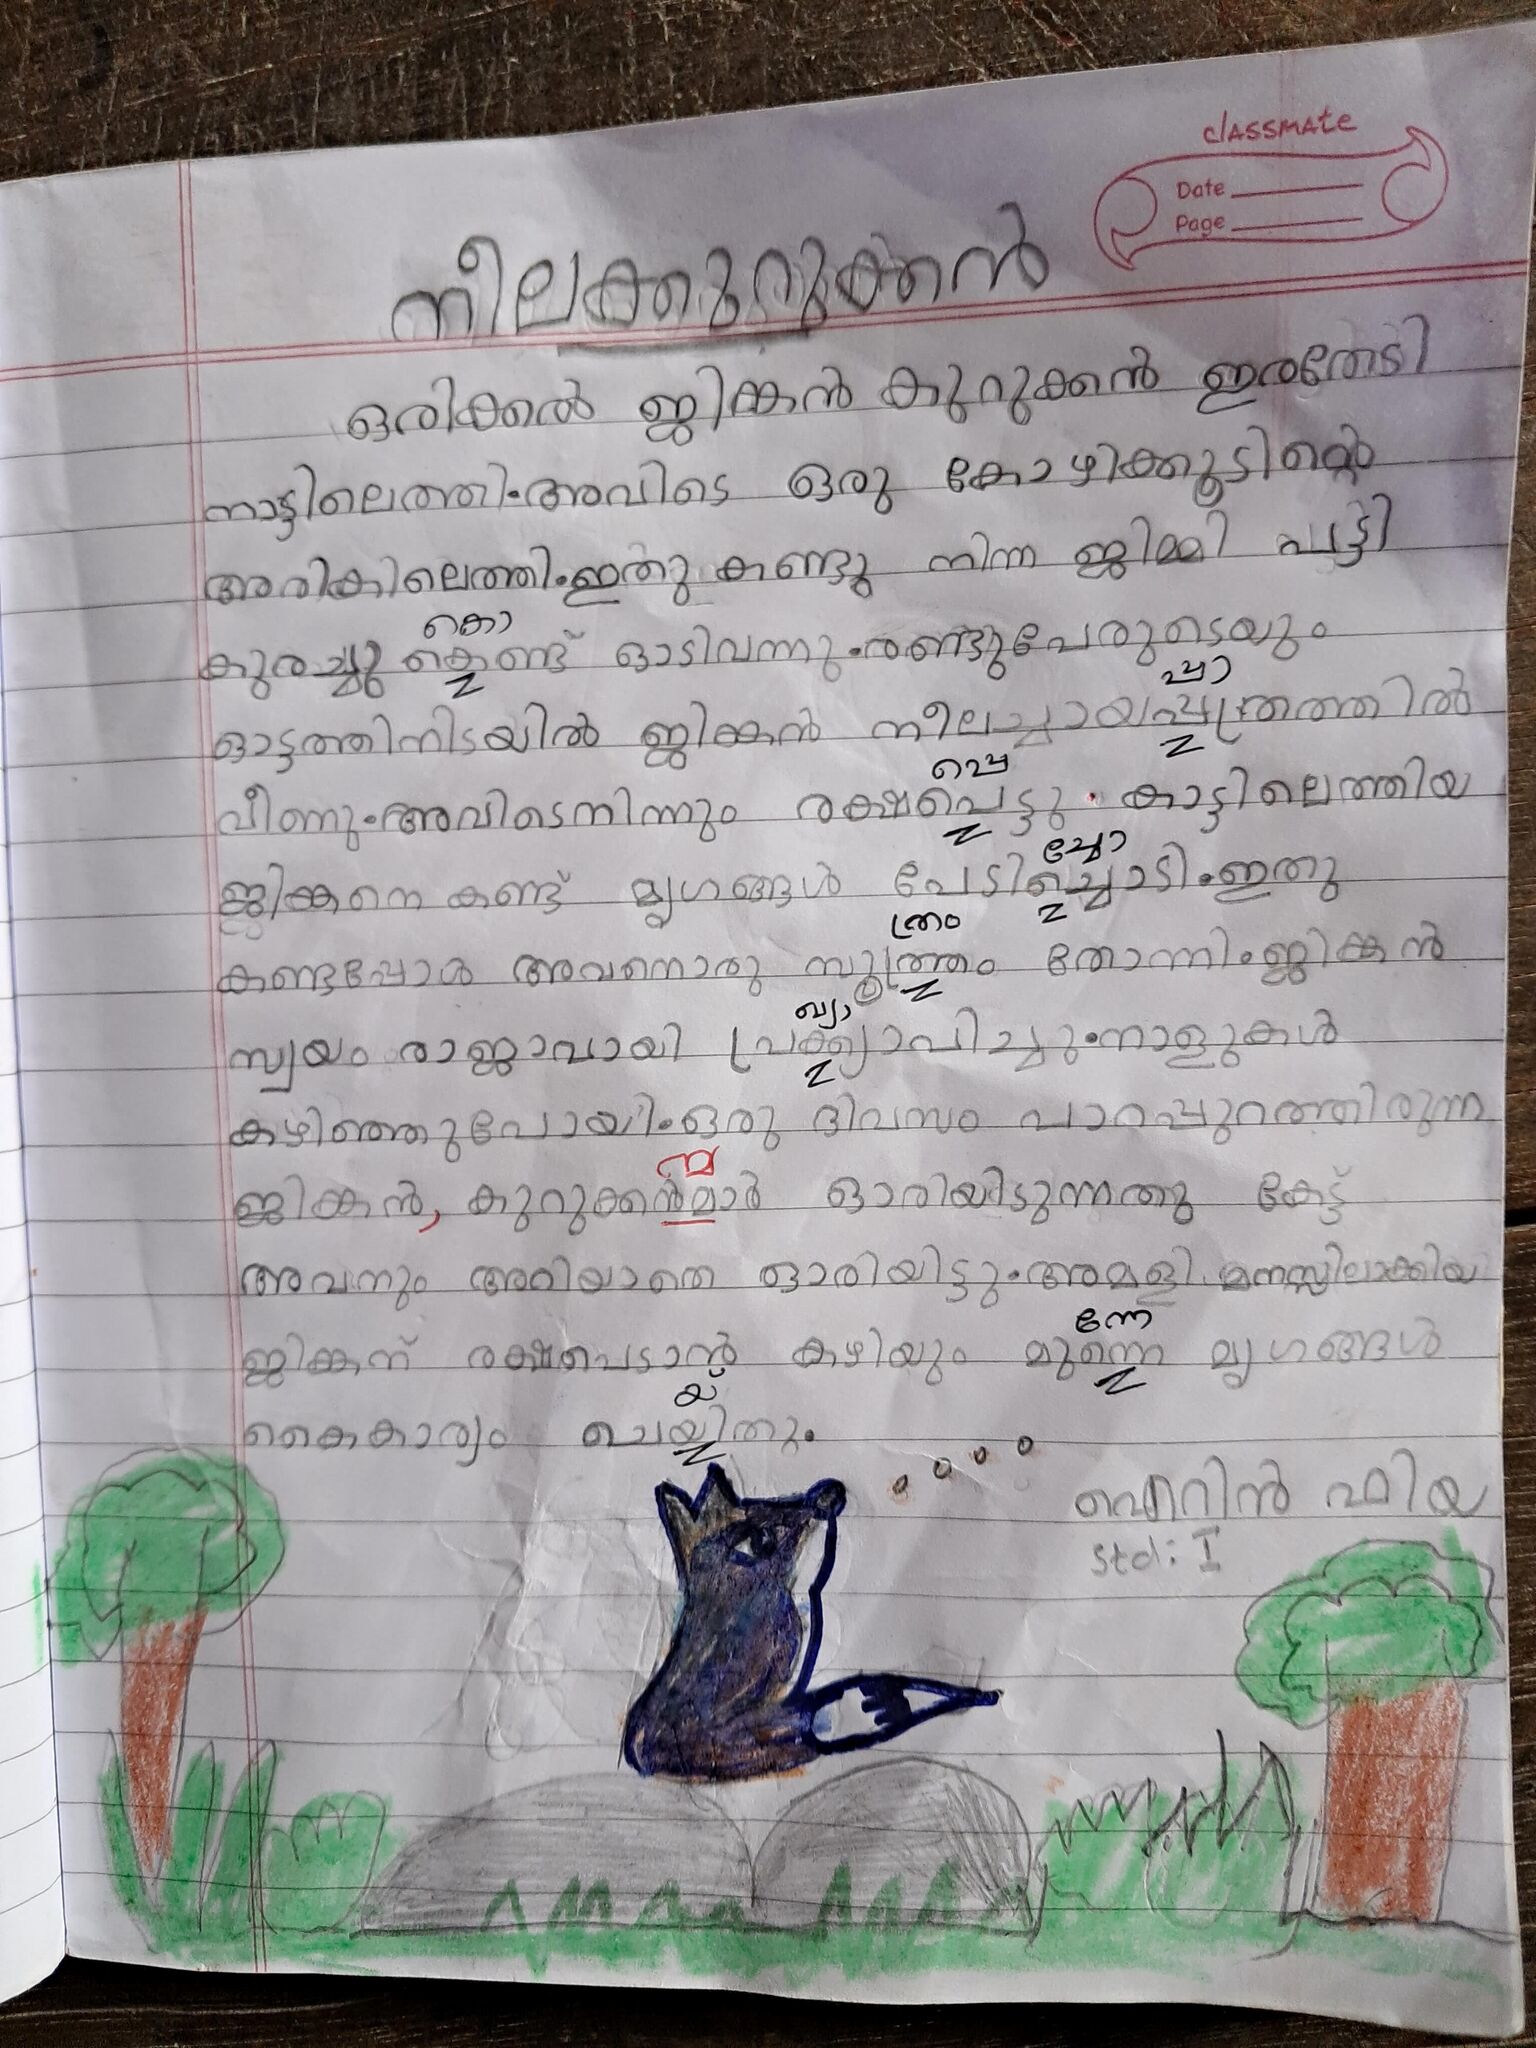 classmate
Date
Page
നീലക്കുറുക്കൻ
ഒരിക്കൽ ജിക്കൻ കുറുക്കൻ ഇരതേടി
നാട്ടിലെത്തി.അവിടെ ഒരു കോഴിക്കൂടിന്റെ
അരികിലെത്തി.ഇതു കണ്ടു നിന്ന ജിമ്മി പട്ടി
കൊ
കുരച്ചു കെണ്ട് ഓടിവന്നു.രണ്ടുപേരുടെയും
പ്പാ
ഓട്ടത്തിനിടയിൽ ജിക്കൻ നീലച്ചായപ്പത്രത്തിൽ
പ്പെ
വീണു.അവിടെനിന്നും രക്ഷപെട്ടു. കാട്ടിലെത്തിയ
ച്ചോ
ജിക്കനെ കണ്ട് മൃഗങ്ങൾ പേടിച്ചൊടി.ഇതു
ത്രം
കണ്ടപ്പോൾ അവനൊരു സൂത്ത്രം തോന്നി.ജിക്കൻ
ഖ്യാ
സ്വയം രാജാവായി പ്രക്ക്യാപിച്ചു.നാളുകൾ
കഴിഞ്ഞുപോയി.ഒരു ദിവസം പാറപ്പുറത്തിരുന്ന
ന്മ
ജിക്കൻ, കുറുക്കൻമാർ ഓരിയിടുന്നതു കേട്ട്
അവനും അറിയാതെ ഓരിയിട്ടു.അമളി മനസ്സിലാക്കിയ
ന്നേ
ജിക്കന് രക്ഷപെടാൻ കഴിയും മുന്നെ മൃഗങ്ങൾ
യ്
കൈകാര്യം ചെയ്യിതു.
ഐറിൻ ഫിയ
std: I